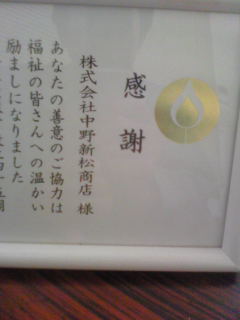 感謝
株式会社中野新松商店 様
あなたの善意のご協力は
福祉の皆さんへの温かい
励ましになりました